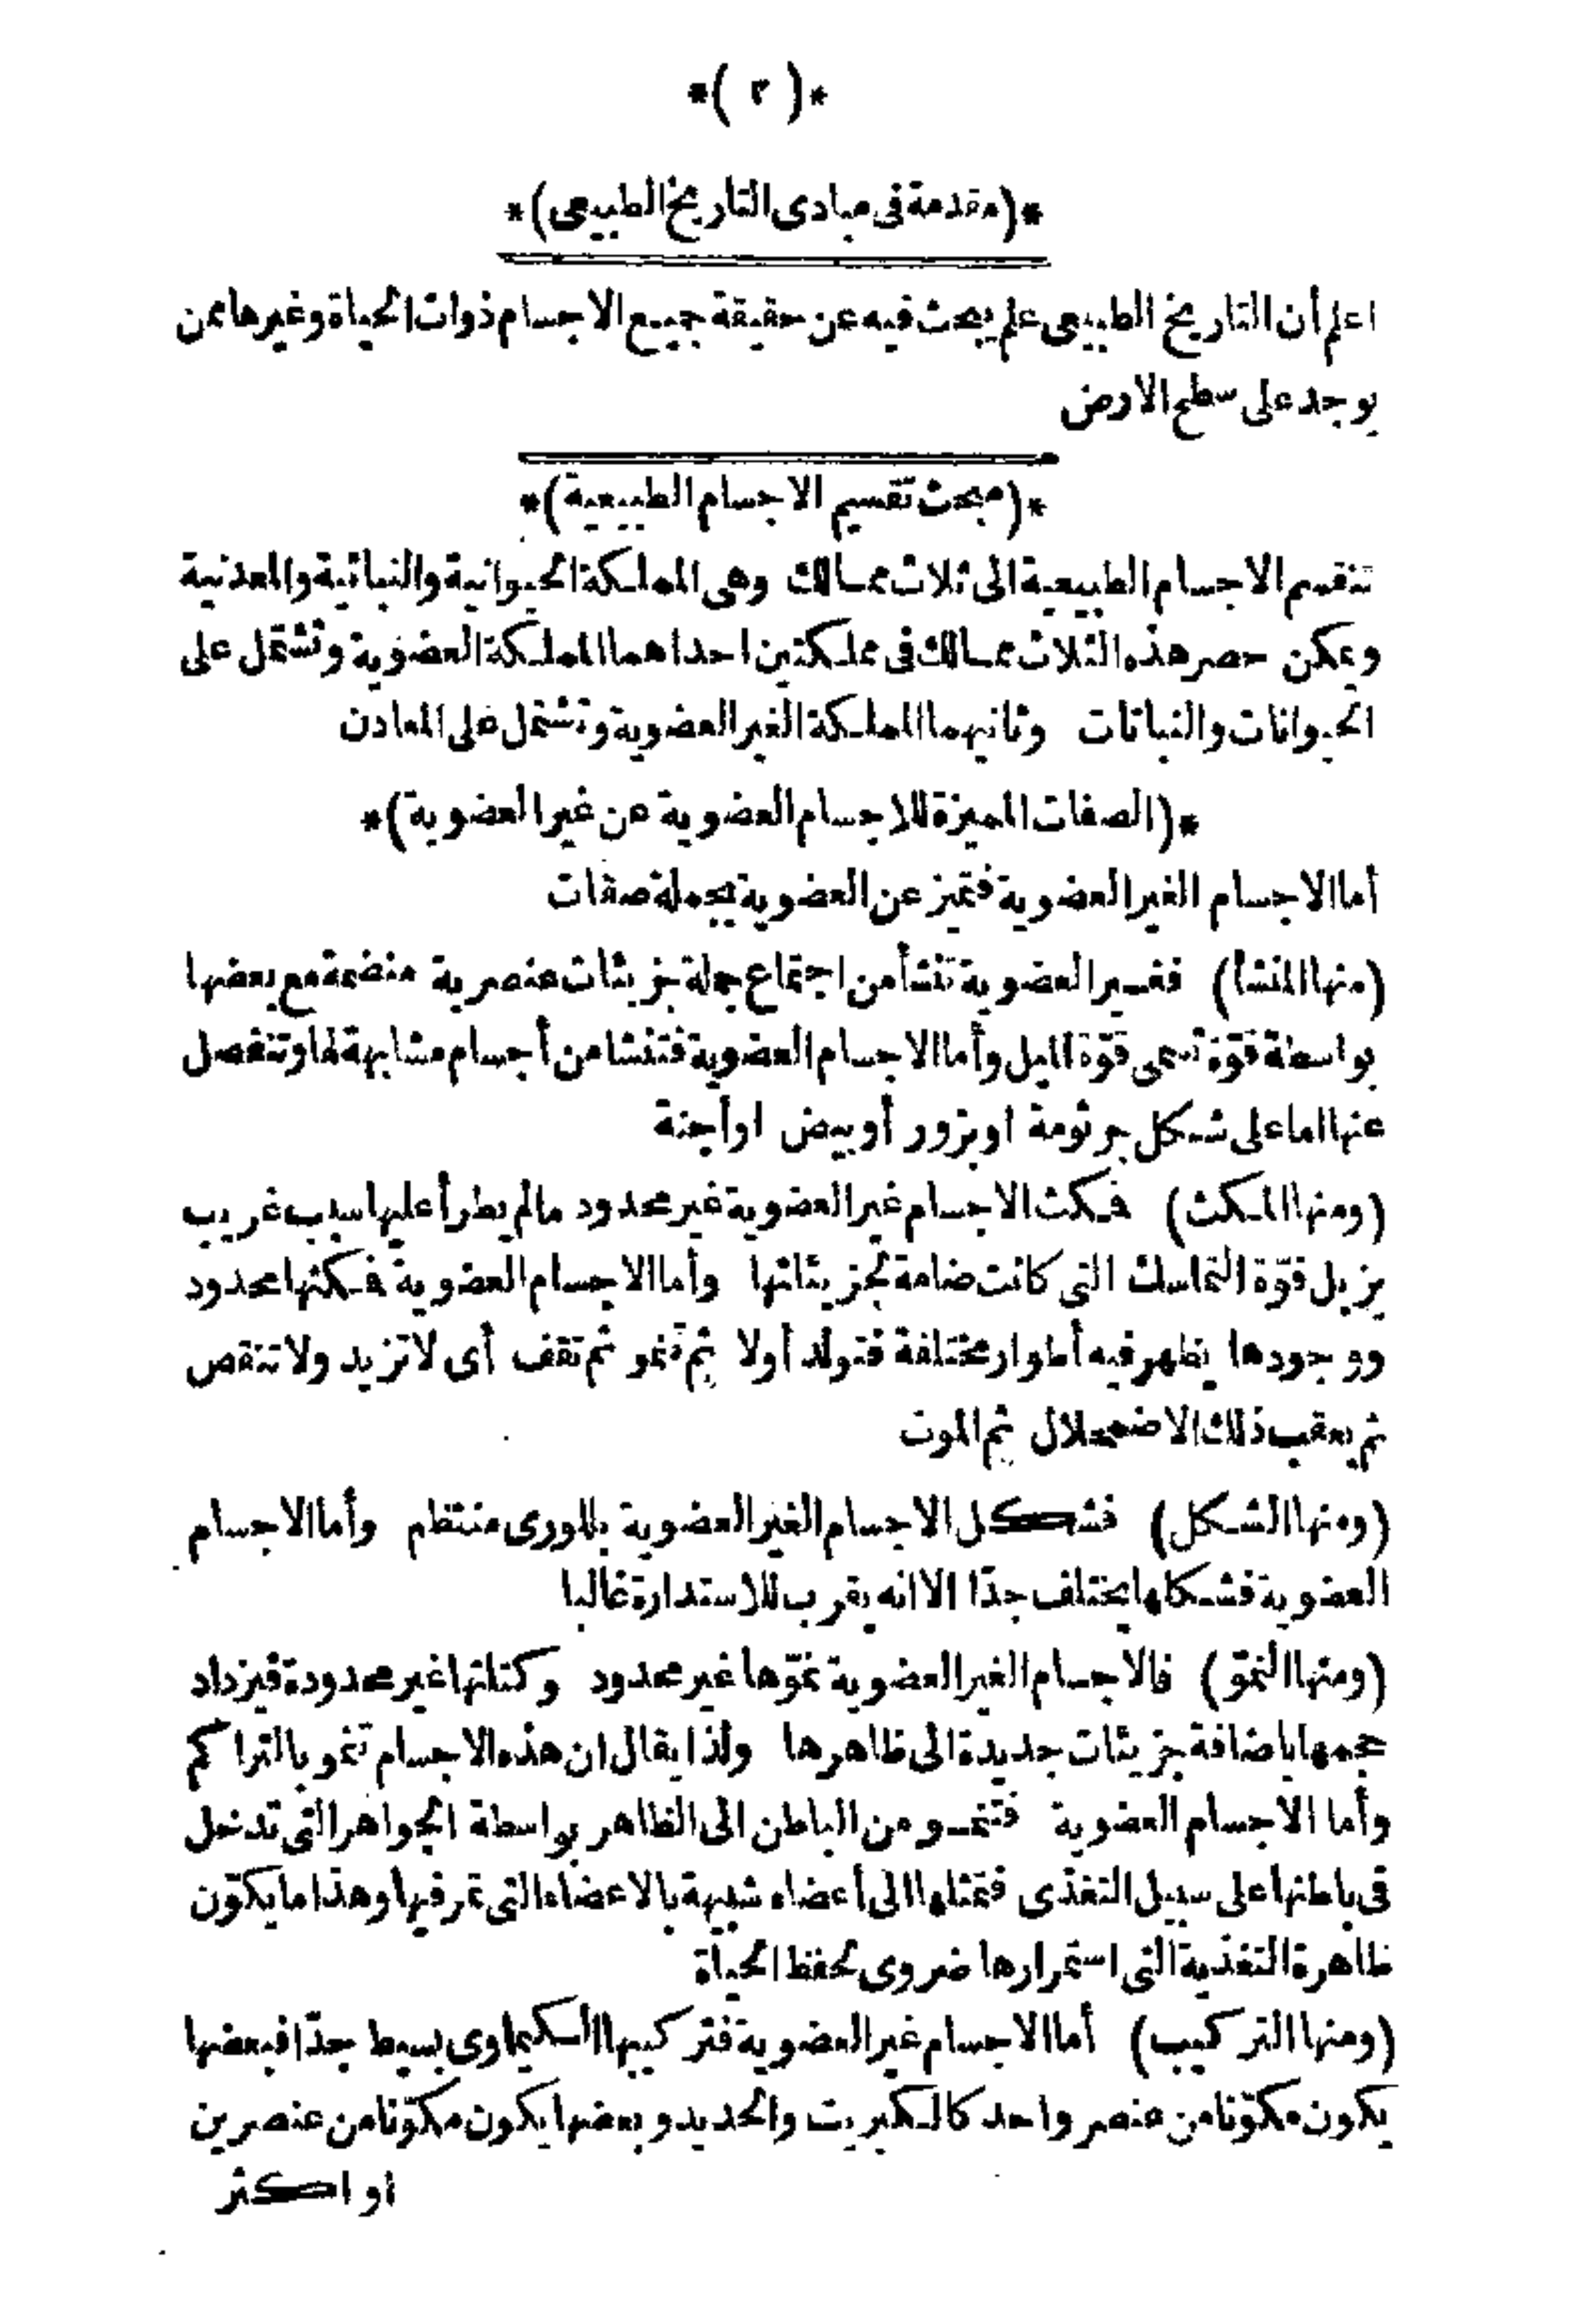 *( ٢ )*
*(مقدمة فى مبادى التاريخ الطبيعى)*
اعلم أن التاريخ الطبيعى علم يبحث فيه عن حقيقة جميع الاجسام ذوات الحياة وغيرها ممن
يوجد على سطح الارض
*(مبحث تقسيم الاجسام الطبيعية)*
تنقسم الاجسام الطبيعية الى ثلاث ممالك وهى المملكة الحيوانية والنباتية والمعدنية
ويمكن حصر هذه الثلاث ممالك فى مملكتين احداهما المملكة العضوية وتشتمل على
الحيوانات والنباتات وثانيهما المملكة الغير العضوية وتشتمل على المعادن
*(الصفات المميزة للاجسام العضوية عن غير العضوية)*
أما الاجسام الغير العضوية فتميز عن العضوية بجملة صفات
(منها المنشأ) فغير العضوية تنشأ من اجتماع جملة جزيئات عنصرية منضمة مع بعضها
بواسطة قوّة تسمى قوّة الميل وأما الاجسام العضوية فتنشا من أجسام مشابهة لها وتنفصل
عنها اما على شكل جرثومة او بزور أو بيض او أجنة
(ومنها المكث) فمكث الاجسام غير العضوية غير محدود مالم يطرأ عليها سبب غريب
يزيل قوّة التماسك التى كانت ضامة لجزيئاتها وأما الاجسام العضوية فمكثها محدود
ووجودها يظهر فيه أطوار مختلفة فتولد أولا ثم تنمو ثم تقف أى لا تزيد ولا تنقص
ثم يعقب ذلك الاضمحلال ثم الموت
(ومنها الشكل) فشكل الاجسام الغير العضوية بللورى منتظم وأما الاجسام
العضوية فشكلها يختلف جدّا الا انه يقرب للاستدارة غالبا
(ومنها النموّ) فالاجسام الغير العضوية نموّها غير محدود وكتلتها غير محدودة فيزداد
حجمها باضافة جزيئات جديدة الى ظاهرها ولذا يقال ان هذه الاجسام تنمو بالتراكم
وأما الاجسام العضوية فتنمو من الباطن الى الظاهر بواسطة الجواهر التى تدخل
فى باطنها على سبيل التغذى فتمثلها الى أعضاء شبيهة بالاعضاء التى تمر فيها وهذا ما يكوّن
ظاهرة التغذية التى استمرارها ضروى لحفظ الحياة
(ومنها التركيب) أما الاجسام غير العضوية فتركيبها الكيماوى بسيط جدّا فبعضها
يكون مكوّنا من عنصر واحد كالكبريت والحديد وبعضها يكون مكوّنا من عنصرين
او اكثر